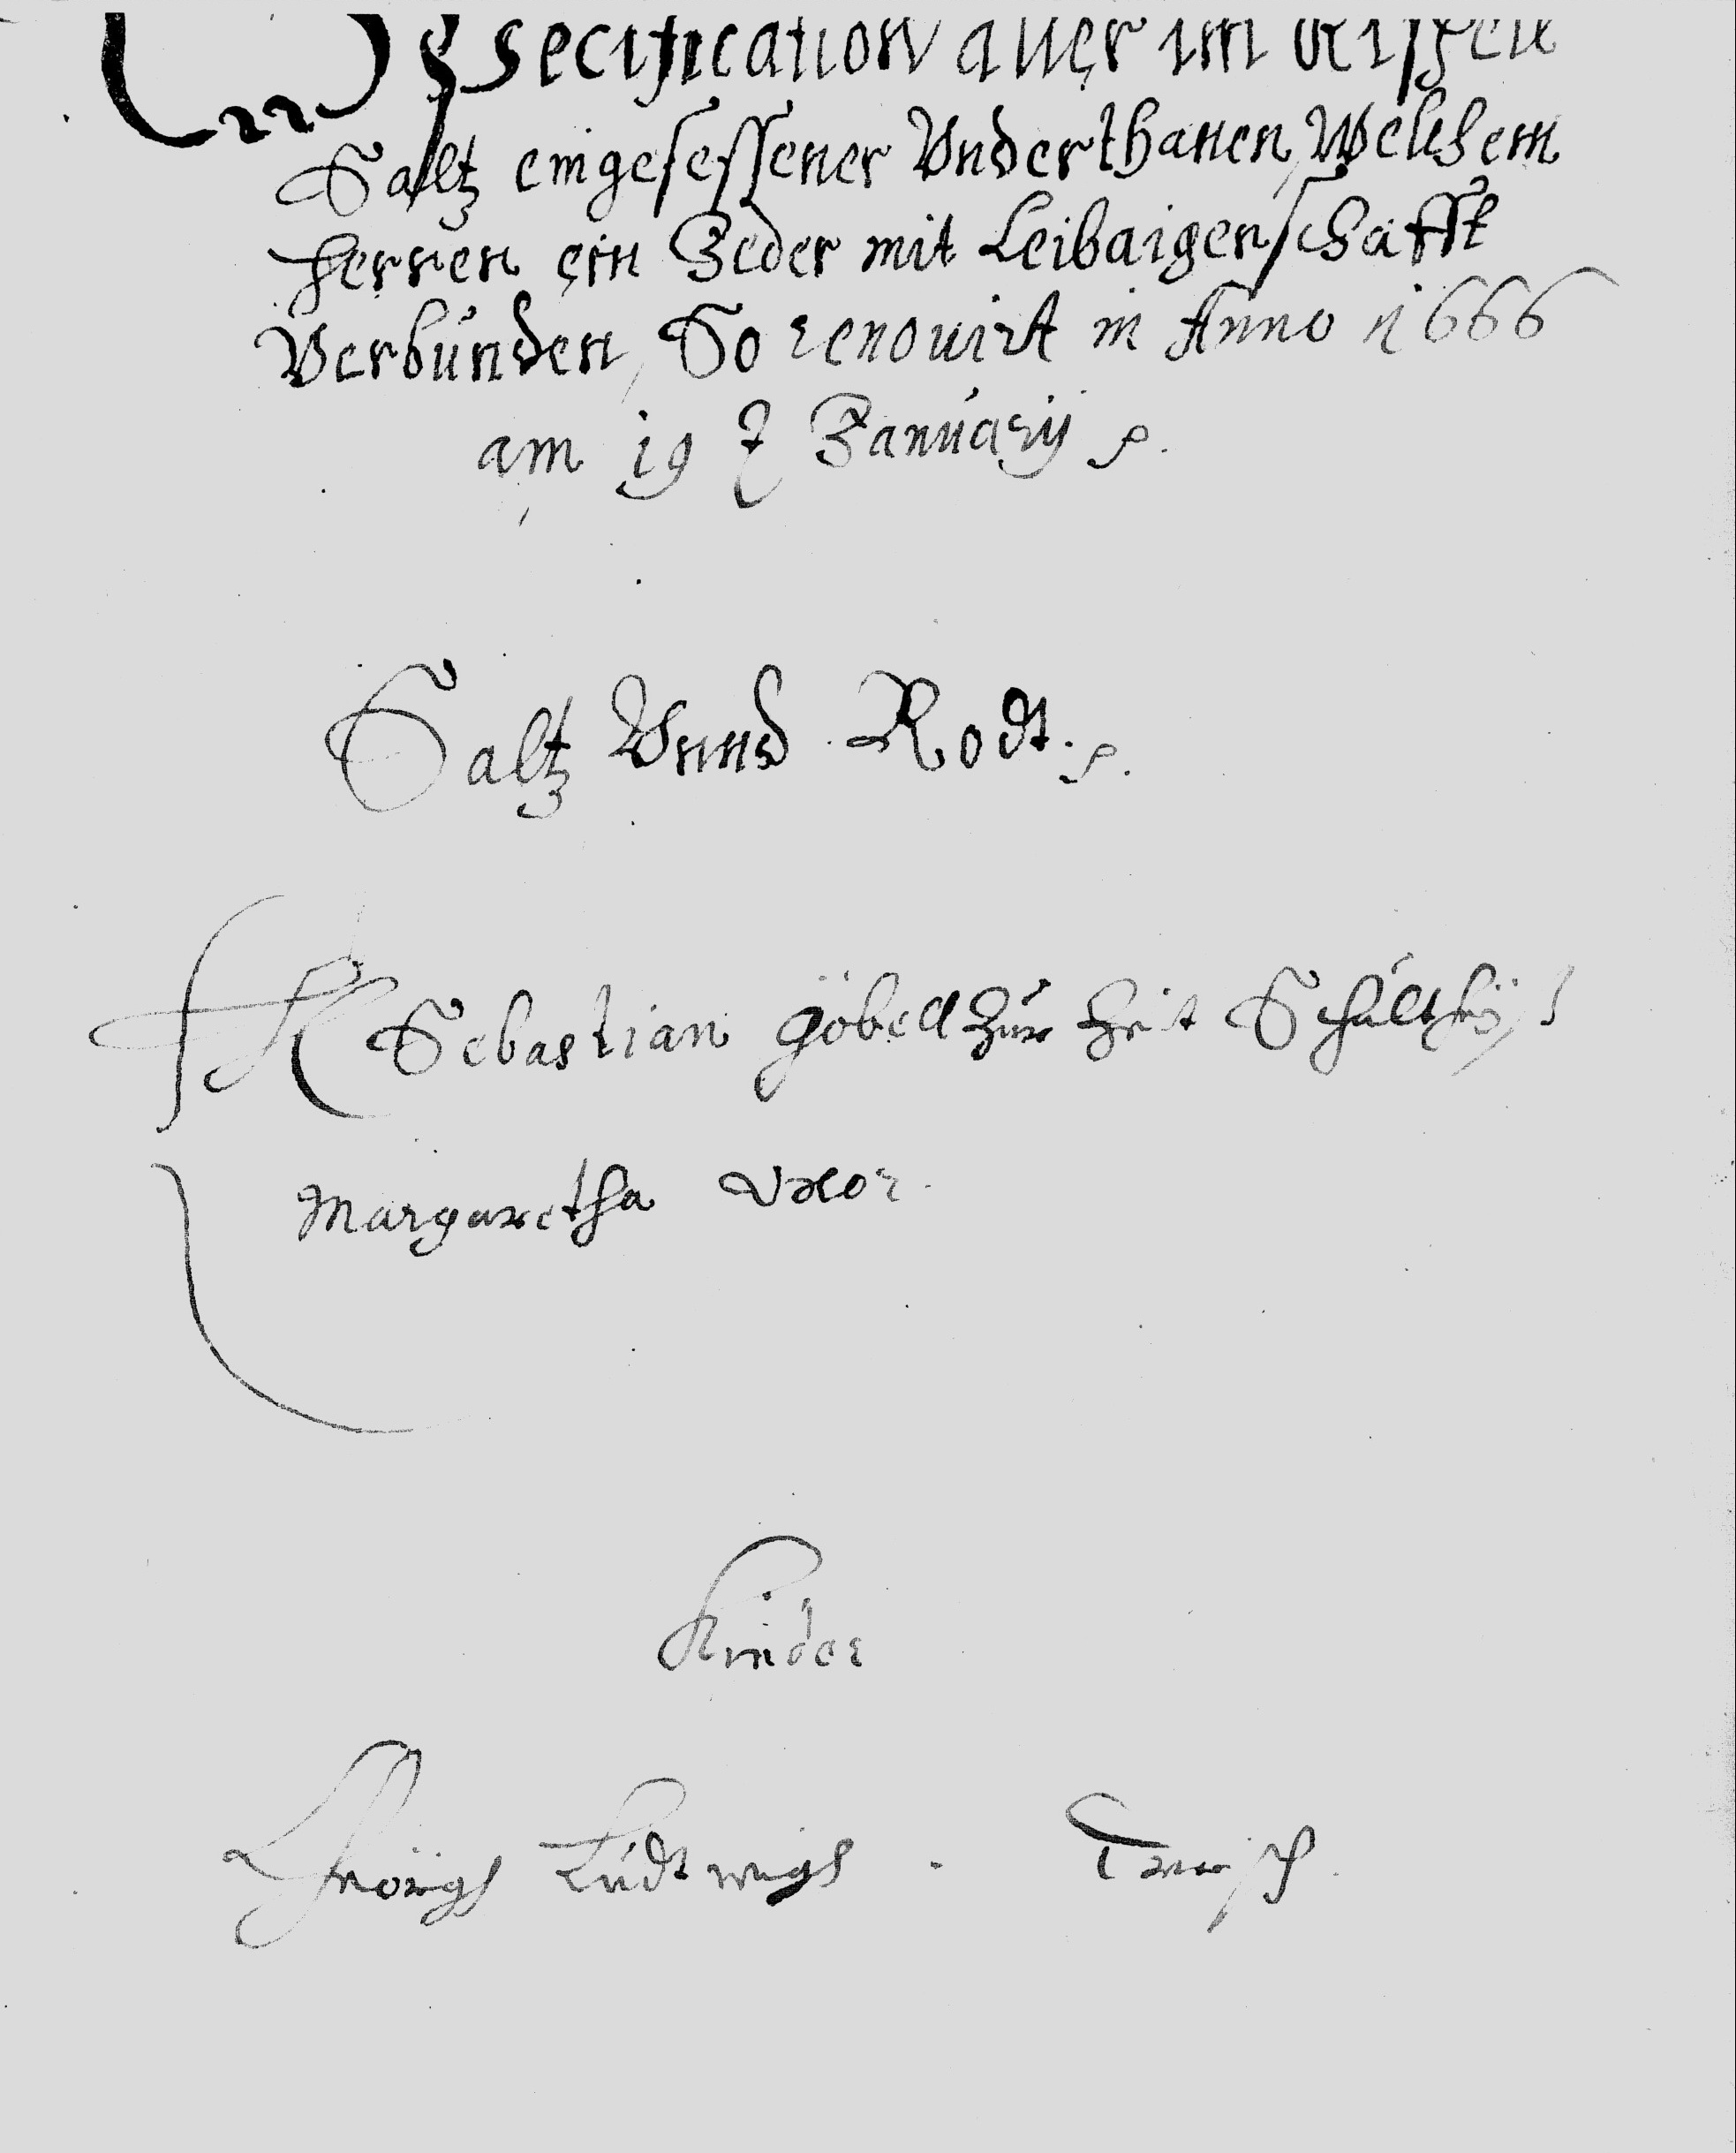 Specification aller im Kirspell
Saltz eingesessener Vnderthanen, Welchem
Herren ein Jeder mit Leibaigenschafft
Verbunden, So renouirt in Anno 1666
am 19 t Januarij
Saltz Vnnd Rodt.
Sebastian Göbell zur Zeit Schultheiß
Margaretha Vxor.
Kinder
Ludtwigh